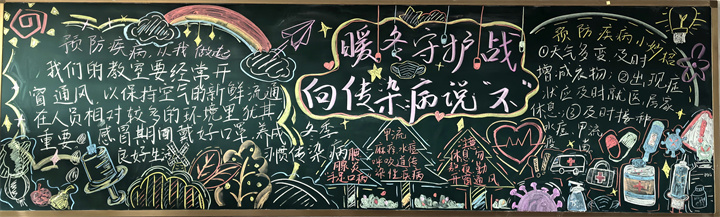 预防疾病，从我做起
我们的教室要经常开
窗通风，以保持空气的新鲜流通
在人员相对较多的环境里尤其
重要。感冒期间戴好口罩，养成
良好生活习惯
暖冬守护战
向传染病说“不”
冬季
传染病
甲流
麻疹 水痘
呼吸道传
染性疾病
腮腺炎
手足口病
注意
休息
开窗通风
预防疾病小妙招
①天气多变及时
增减衣物；②出现症
状应及时就医居家
休息；③及时接种
水痘、甲流
疫苗